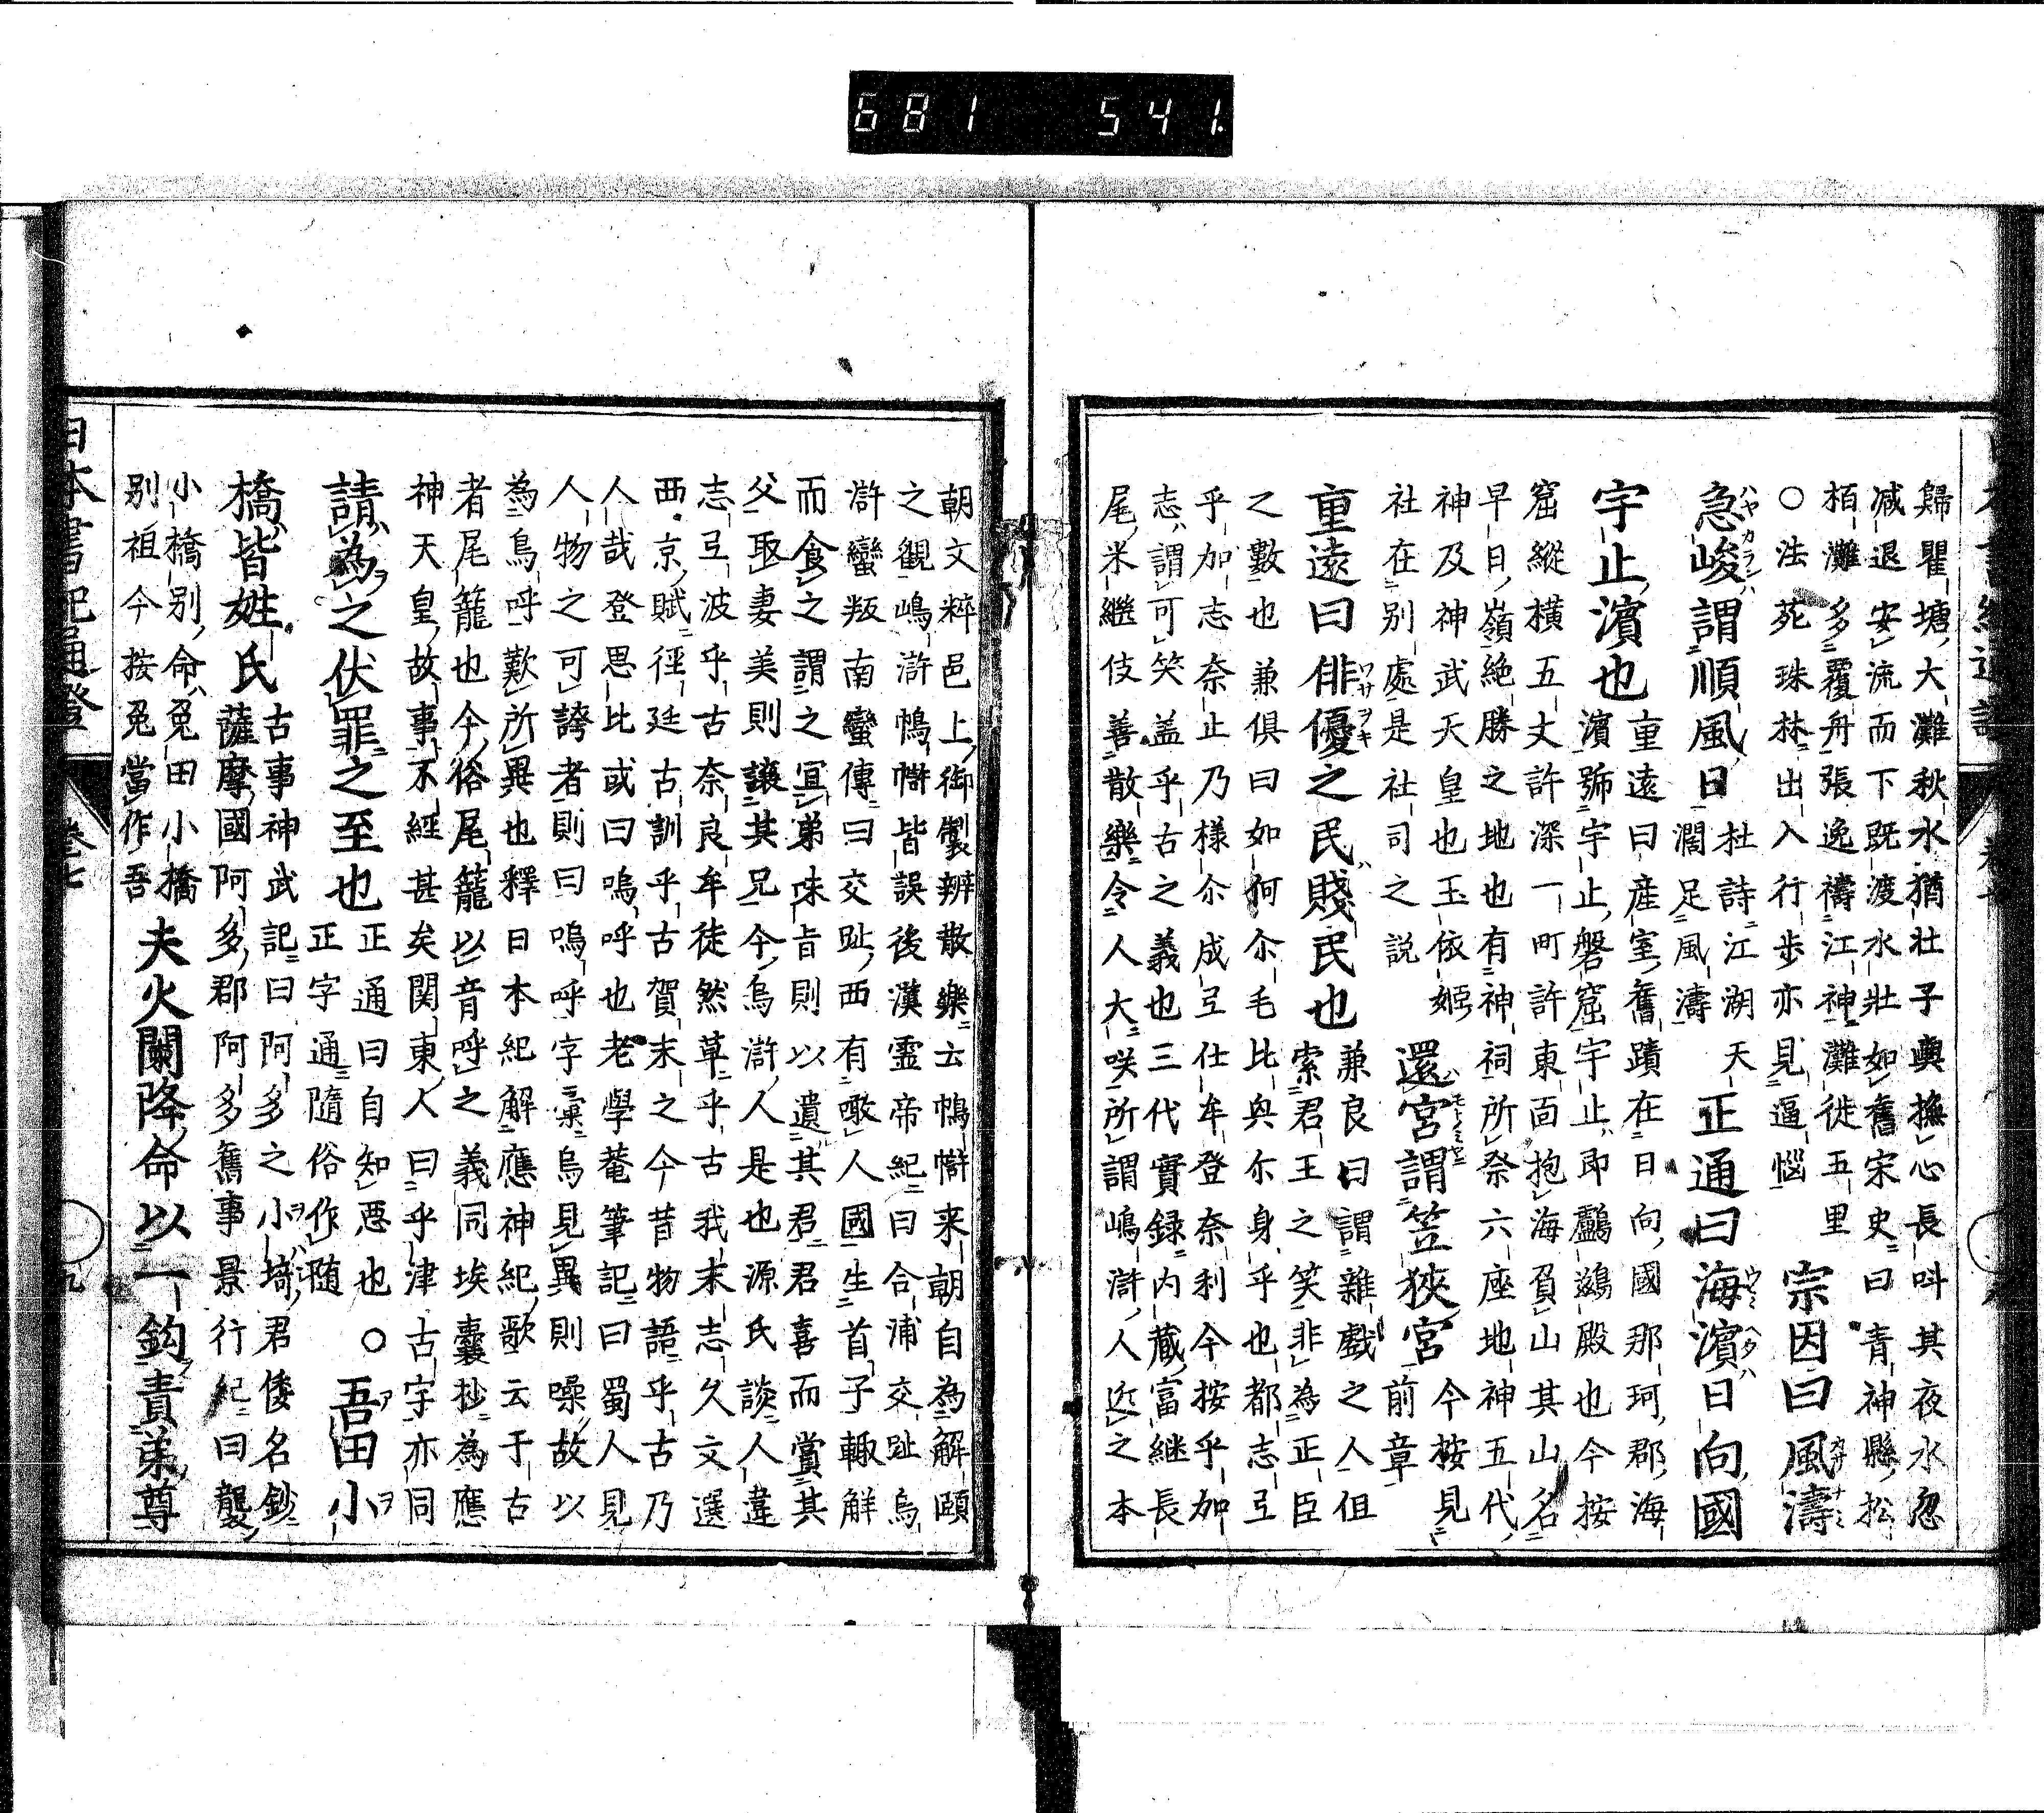 681 541.
歸瞿塘大灘秋水猶壮子輿撫心長叫其夜水忽
減退安流而下既渡水壮如舊宋史曰青神縣松
栢灘多覆舟張逸禱江神灘徙五里
○法苑珠林出入行歩亦見逼惱
宗因曰風濤
急峻謂順風日
杜詩江湖天
濶足風濤
正通曰海濱日向國
宇止濱也
重遠曰産室舊蹟在日向國那珂郡海
濱號宇止磐窟宇止即鸕鷀殿也今按
窟縱横五丈許深一町許東面抱海負山其山名
早日嶺絶勝之地也有神祠所祭六座地神五代
神及神武天皇也玉依姫
社在別處是社司之説
還宮謂笠狹宮
今按見
前章
重遠曰俳優之民賤民也
兼良曰謂雜戲之人但
索君王之笑非為正臣
之數也兼倶曰如何尓毛比與尓身乎也都志弖
乎加志奈止乃様尓成弖仕牟登奈利今按乎加
志謂可笑盖乎古之義也三代實録内蔵富継長
尾米継伎善散樂令人大咲所謂嶋滸人近之本
朝文粹邑上御製辨散樂云幆㡔来朝自為解頤
之觀嶋滸幆㡔皆誤後漢霊帝紀曰合浦交趾烏
滸蠻叛南蠻傳曰交趾西有噉人國生首子輙解
而食之謂之宜弟味旨則以遺其君君喜而賞其
父取妻美則譲其兄今烏滸人是也源氏談人違
志弖波乎古奈良牟徒然草乎古我末志久文選
西京賦徑廷古訓乎古賀末之今昔物語乎古乃
人哉登思比或曰嗚呼也老學菴筆記曰蜀人見
人物之可誇者則曰嗚呼字彙烏見異則噪故以
為烏呼歎所異也釋日本紀解應神紀歌云于古
者尾籠也今俗尾籠以音呼之義同埃嚢抄為應
神天皇故事不經甚矣関東人曰乎津古字亦同
請為之伏罪之至也
正通曰自知悪也○
正字通隨俗作随
吾田小
橋皆姓氏
古事神武記曰阿多之小埼君倭名鈔
薩摩國阿多郡阿多舊事景行紀曰襲
小橋別命兎田小橋
別祖今按兎當作吾
夫火闌降命以一鈎責弟尊
日本書紀通證
巻七
九